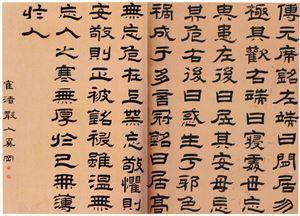 傅元席銘左端曰閒居勿
極其歡右端曰寢處毋忘
其患左後曰居其安毋忘
其危右後曰惑生于邪色
禍成于多言冠銘曰居高
無忘危在上無忘敬懼則
安敬則正被銘被雖溫無
忘人之寒無厚於己無薄
於人
隺渚散人奚岡